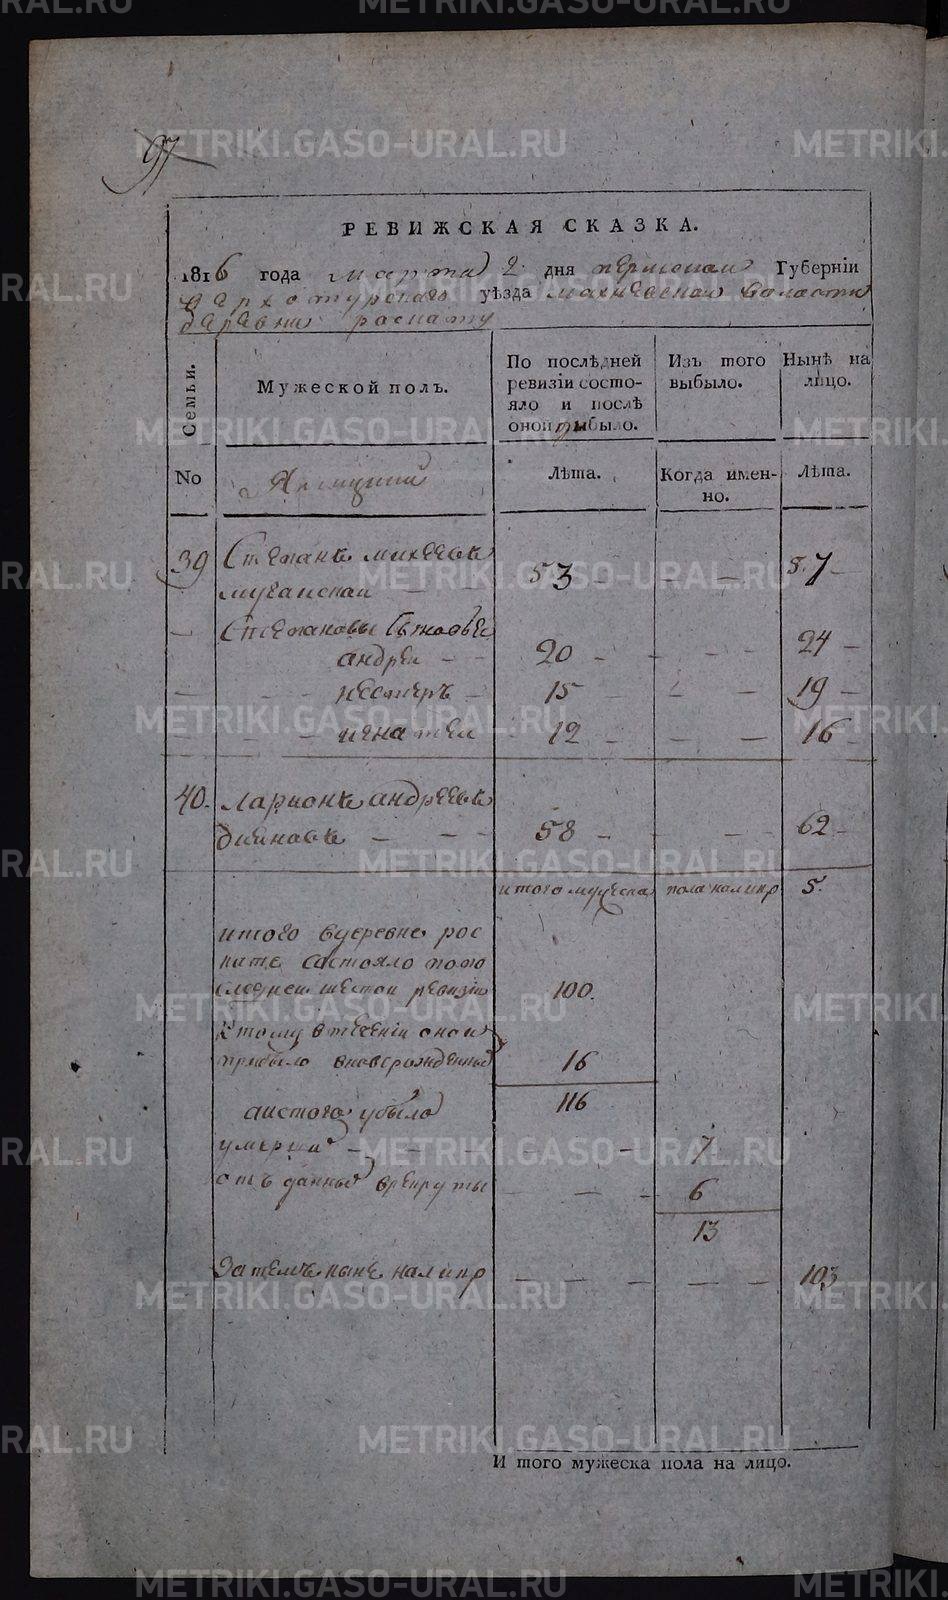 METRIKI.GASO-URAL.RU
97
РЕВИЖСКАЯ СКАЗКА.
1816 года марта 2 дня пермской Губерніи
Верхотурскаго уѣзда махневской воласти
деревни роспату
Семьи.
Мужеской полъ.
По послѣдней ревизіи состояло и послѣ оной прибыло.
Изъ того выбыло.
Нынѣ на лицо.
No
Лѣта.
Когда именно.
Лѣта.
39 Степанъ михеевъ
53 — — — 57 —
Степановы сыновья
андреи — — 20 — — — — 24 —
нестеръ — 15 — — 19 —
игнатеи 12 — — — 16 —
40. Ларионъ андреевъ
— — — 58 — — — — 62 —
итого мужеска пола налицо 5.
итого вдеревне рос
пате состояло попо
следнеи шестои ревизіи 100.
ктому втеченіи онои
прибыло вновьрожденныхъ 16
116
аистого убыло
умерша — — — — 7
отъданныхъ врекруты — — — 6
13
Затемъ ныне налицо — — — — — 103
И того мужеска пола на лицо.